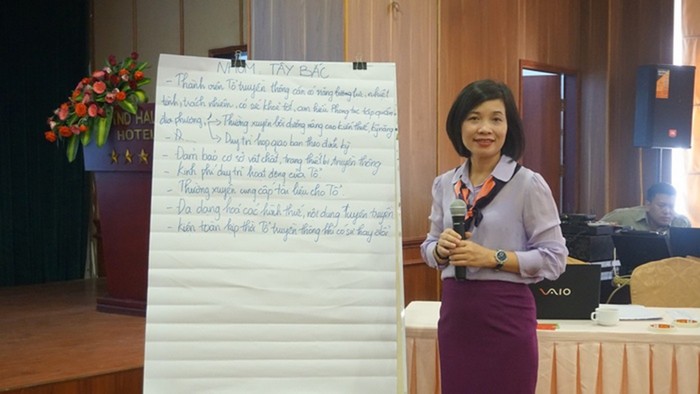 NHÓM TÂY BẮC
- Thành viên Tổ truyền thông cần có năng lượng lực, nhiệt
tình, trách nhiệm, có sức khoẻ tốt, am hiểu phong tục tập quán
địa phương, → Thường xuyên bồi dưỡng nâng cao kiến thức, kỹ năng
- Đ..... → Duy trì họp giao ban theo định kỳ
- Đảm bảo cơ sở vật chất, trang thiết bị truyền thông
- Kinh phí duy trì hoạt động của Tổ
- Thường xuyên cung cấp tài liệu cho Tổ
- Đa dạng hoá các hình thức, nội dung tuyên truyền
- Kiện toàn kịp thời Tổ truyền thông khi có sự thay đổi
HOTEL
VAIO